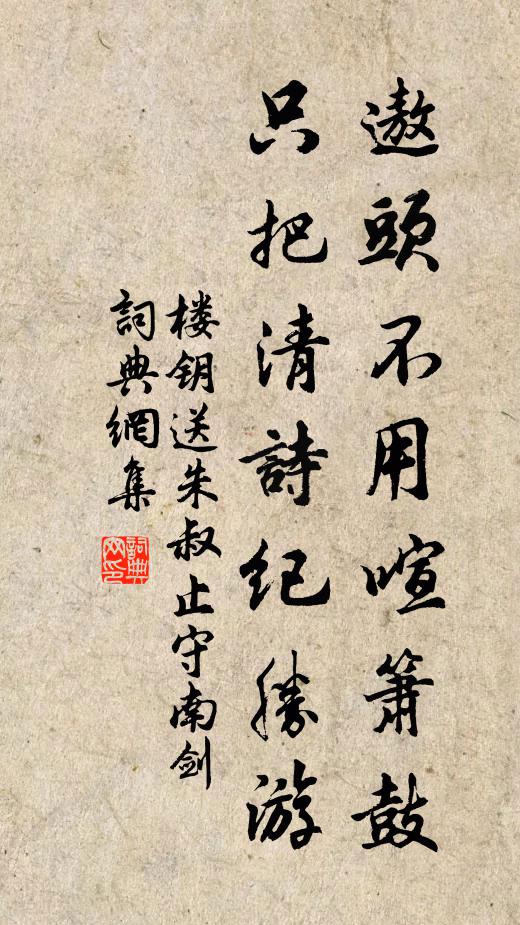 遨頭不用喧簫鼓
只把清詩紀勝游
楼钥送朱叔止守南剑
詞典網集
詞典网印